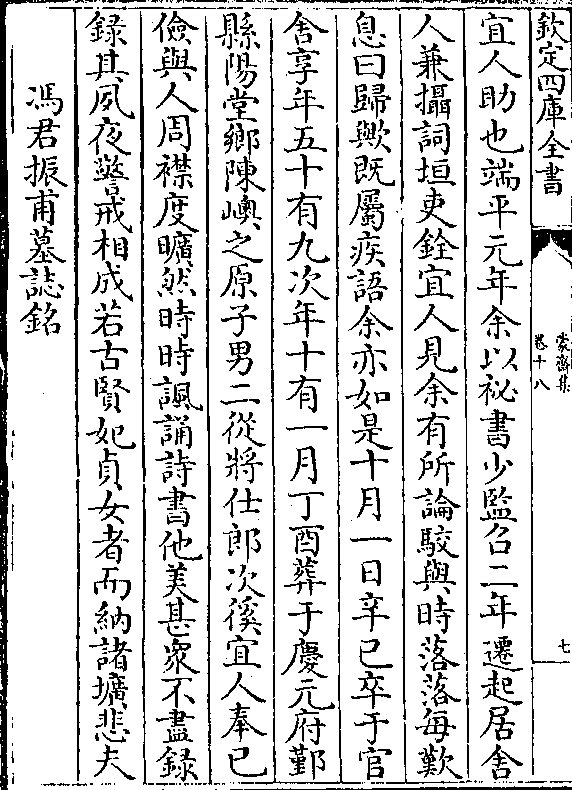 欽定四庫全書
蒙齋集
卷十八
七
宜人助也端平元年余以祕書少監召二年遷起居舍
人兼攝詞垣吏銓宜人見余有所論駁與時落落每歎
息曰歸歟既屬疾語余亦如是十月一日辛巳卒于官
舍享年五十有九次年十有一月丁酉葬于慶元府鄞
縣陽堂鄉陳嶴之原子男二從將仕郎次徯宜人奉已
儉與人周襟度曠然時時諷誦詩書他美甚衆不盡錄
錄其夙夜警戒相成若古賢妃貞女者而納諸壙悲夫
馮君振甫墓誌銘